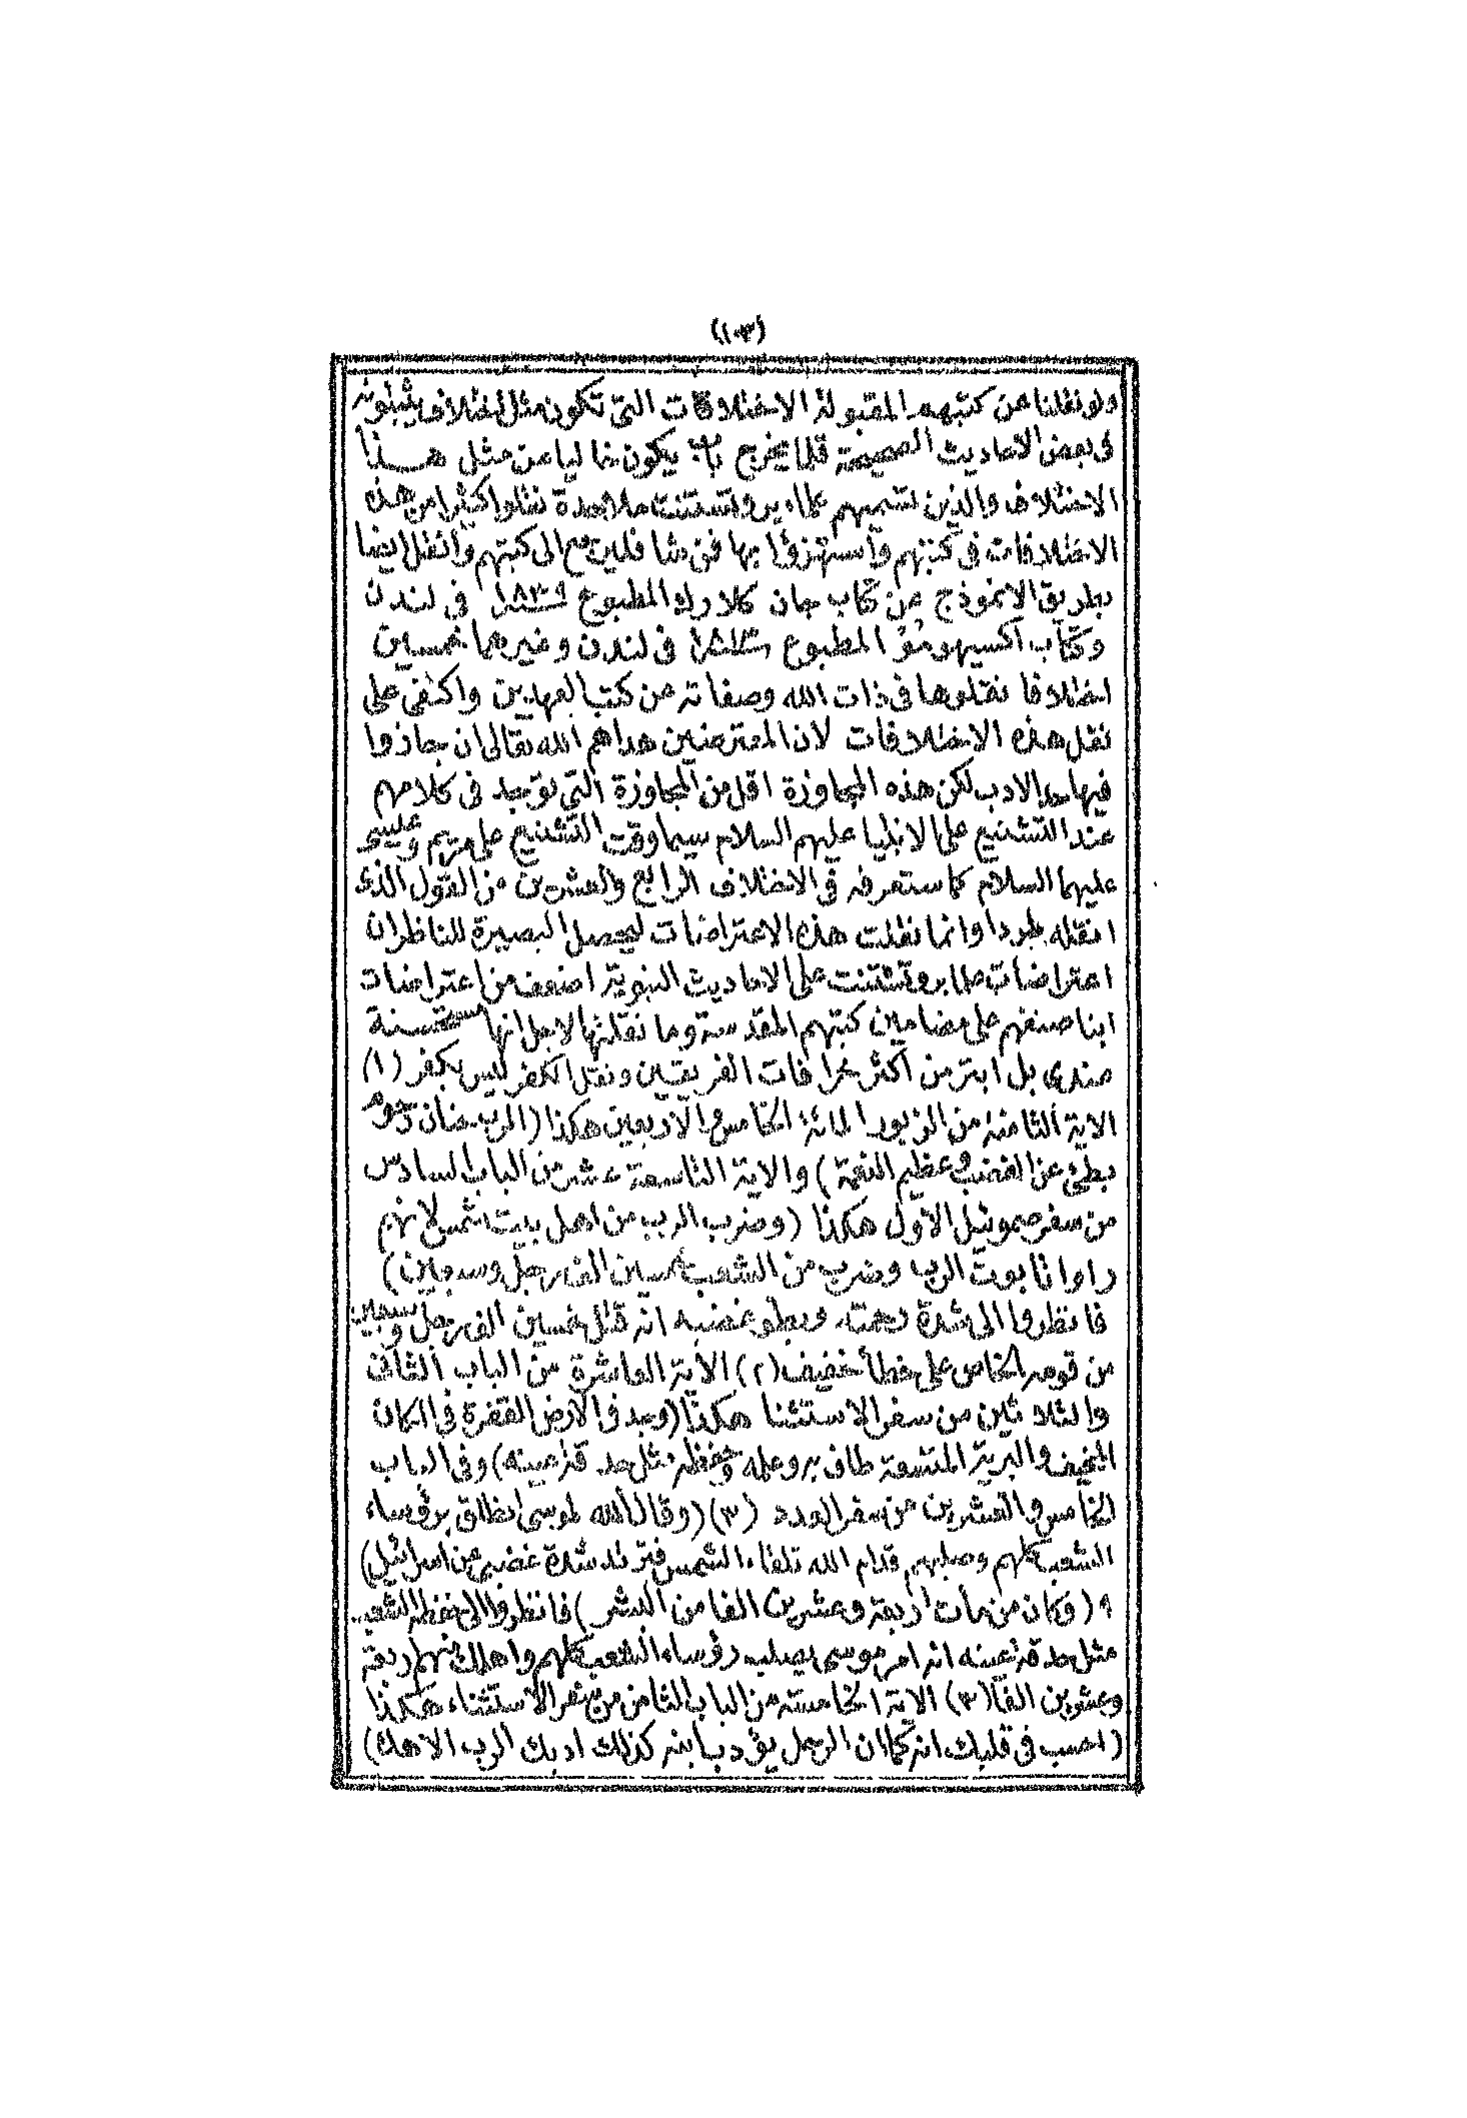 (١٠٣)
ولو نقلنا عن كتبهم المقبولة الاختلافات التى تكون مثل اختلاف يثبتونه
فى بعض الاحاديث الصحيحة قلما يخرج باب يكون خاليا عن مثل هذا
الاختلاف والذين تسميهم علماء پروتستنت ملاحدة نقلوا كثيرا من هذه
الاختلافات فى كتبهم واستهزؤا بها فمن شا فليرجع الى كتبهم وانقل ايضا
بطريق الانموذج عن كتاب جان كلارك المطبوع ١٨٣٩ فى لندن
وكتاب اكسيهومو المطبوع فى لندن وغيرهما خمسين
اختلافا نقلوها فى ذات الله وصفاته عن كتب العهدين واكتفى على
نقل هذه الاختلافات لان المعترضين هداهم الله تعالى ان جاوزوا
فيها حد الادب لكن هذه المجاوزة اقل من المجاوزة التى توجد فى كلامهم
عند التشنيع على الانبيا عليهم السلام سيما وقت التشنيع على مريم وعيسى
عليهما السلام كما ستعرفه فى الاختلاف الرابع والعشرين من القول الذى
انقله طردا وانما نقلت هذه الاعتراضات ليحصل البصيرة للناظر ان
اعتراضات علما پروتستنت على الاحاديث النبوية اضعف من اعتراضات
ابنا صنفهم على مضامين كتبهم المقدسة وما نقلتها لاجل انها مستحسنة
عندى بل ابتر من اكثر خرافات الفريقين ونقل الكفر ليس بكفر (١)
الاية الثامنة من الزبور المائة الخامس والاربعين هكذا (الرب حنان رحوم
بطئ عن الغضب وعظيم النعمة) والاية التاسعة عشر من الباب السادس
من سفر صموئيل الاول هكذا (وضرب الرب من اهل بيت شمس لانهم
راوا تابوت الرب وضرب من الشعب خمسين الف رجل وسبعين)
فانظروا الى شدة رحمته وبطو غضبه انه قتل خمسين الف رجل وسبعين
من قومه الخاص على خطأ خفيف (٢) الاية العاشرة من الباب الثانى
والثلاثين من سفر الاستثنا هكذا (وجد فى الارض القفرة فى المكان
المخيف والبرية المتسعة طاف به وعلمه وحفظه مثل حدقة عينه) وفى الباب
الخامس والعشرين من سفر العدد (٣) (وقال الله لموسى انطلق برؤساء
الشعب كلهم وصلبهم قدام الله تلقاء الشمس فترتد شدة غضبى عن اسرائيل)
٩ (وكان من مات اربعة وعشرين الفا من البشر) فانظروا الى حفظه الشعب
مثل حدقة عينه انه امر موسى بصلب رؤساء الشعب كلهم واهلك منهم اربعة
وعشرين الفا (٣) الاية الخامسة من الباب الثامن من سفر الاستثناء هكذا
(احسب فى قلبك انه كما ان الرجل يؤدب ابنه كذلك ادبك الرب الاهك)